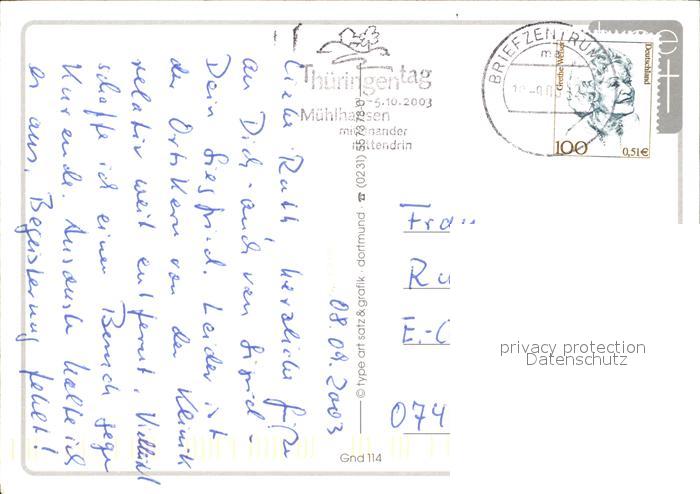 08.09.2003
Liebe Ruth, herzliche Grüße
an Dich - auch von Sigrid -
Dein Siegfried. Leider ist
der Ortskern von der Klinik
relativ weit entfernt. Vielleicht
schaffe ich einen Besuch gegen
Kurende. Ansonsten halte ich
es aus. Begeisterung fehlt!
Thüringentag
-5.10.2003
Mühlhausen
miteinander
mittendrin
BRIEFZENTRUM
Grethe Weiser
Deutschland
100
0,51€
© type art satz & grafik · dortmund · ☎ (0231) 557878-0
Frau
Ru
E.-
074
privacy protection
Datenschutz
Gnd 114